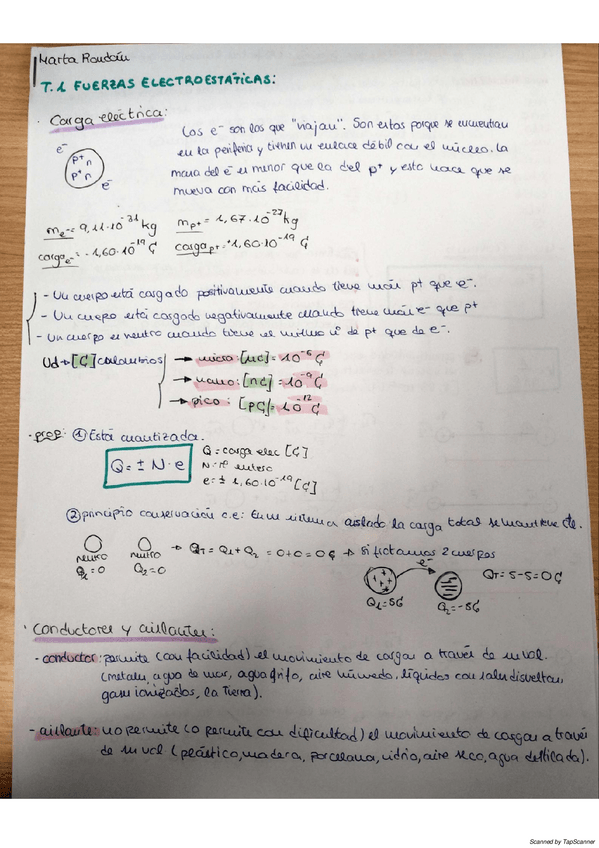 Marta Roudán
T.1 FUERZAS ELECTROESTÁTICAS:
· Carga eléctrica:
Los e⁻ son los que "viajan". Son estos porque se encuentran
en la periferia y tienen un enlace débil con el núcleo. La
masa del e⁻ es menor que la del p⁺ y esto hace que se
mueva con más facilidad.
e⁻
p⁺ n
p⁺ n
e⁻
m e⁻ = 9,11·10⁻³¹ kg m p⁺ = 1,67·10⁻²⁷ kg
carga e⁻ = -1,60·10⁻¹⁹ C carga p⁺ = +1,60·10⁻¹⁹ C
- Un cuerpo está cargado positivamente cuando tiene más p⁺ que e⁻.
- Un cuerpo está cargado negativamente cuando tiene más e⁻ que p⁺
- Un cuerpo es neutro cuando tiene el mismo nº de p⁺ que de e⁻.
Ud → [C] culombios → micro: [μC] = 10⁻⁶ C
→ nano: [nC] = 10⁻⁹ C
→ pico: [pC] = 10⁻¹² C
- prop: ① Está cuantizada.
Q = ± N · e
Q = carga elec [C]
N = nº entero
e = ± 1,60·10⁻¹⁹ [C]
② principio conservación c.e: En un sistema aislado la carga total se mantiene cte.
neutro neutro → QT = Q1 + Q2 = 0 + 0 = 0 C → si frotamos 2 cuerpos
Q1 = 0 Q2 = 0
e⁻
QT = 5 - 5 = 0 C
Q1 = 5C Q2 = -5C
· Conductores y aislantes:
- conductor: permite (con facilidad) el movimiento de cargas a través de su vol.
(metales, agua de mar, agua grifo, aire húmedo, líquidos con sales disueltas,
gases ionizados, la Tierra).
- aislante: no permite (o permite con dificultad) el movimiento de cargas a través
de su vol (plástico, madera, porcelana, vidrio, aire seco, agua destilada).
Scanned by TapScanner